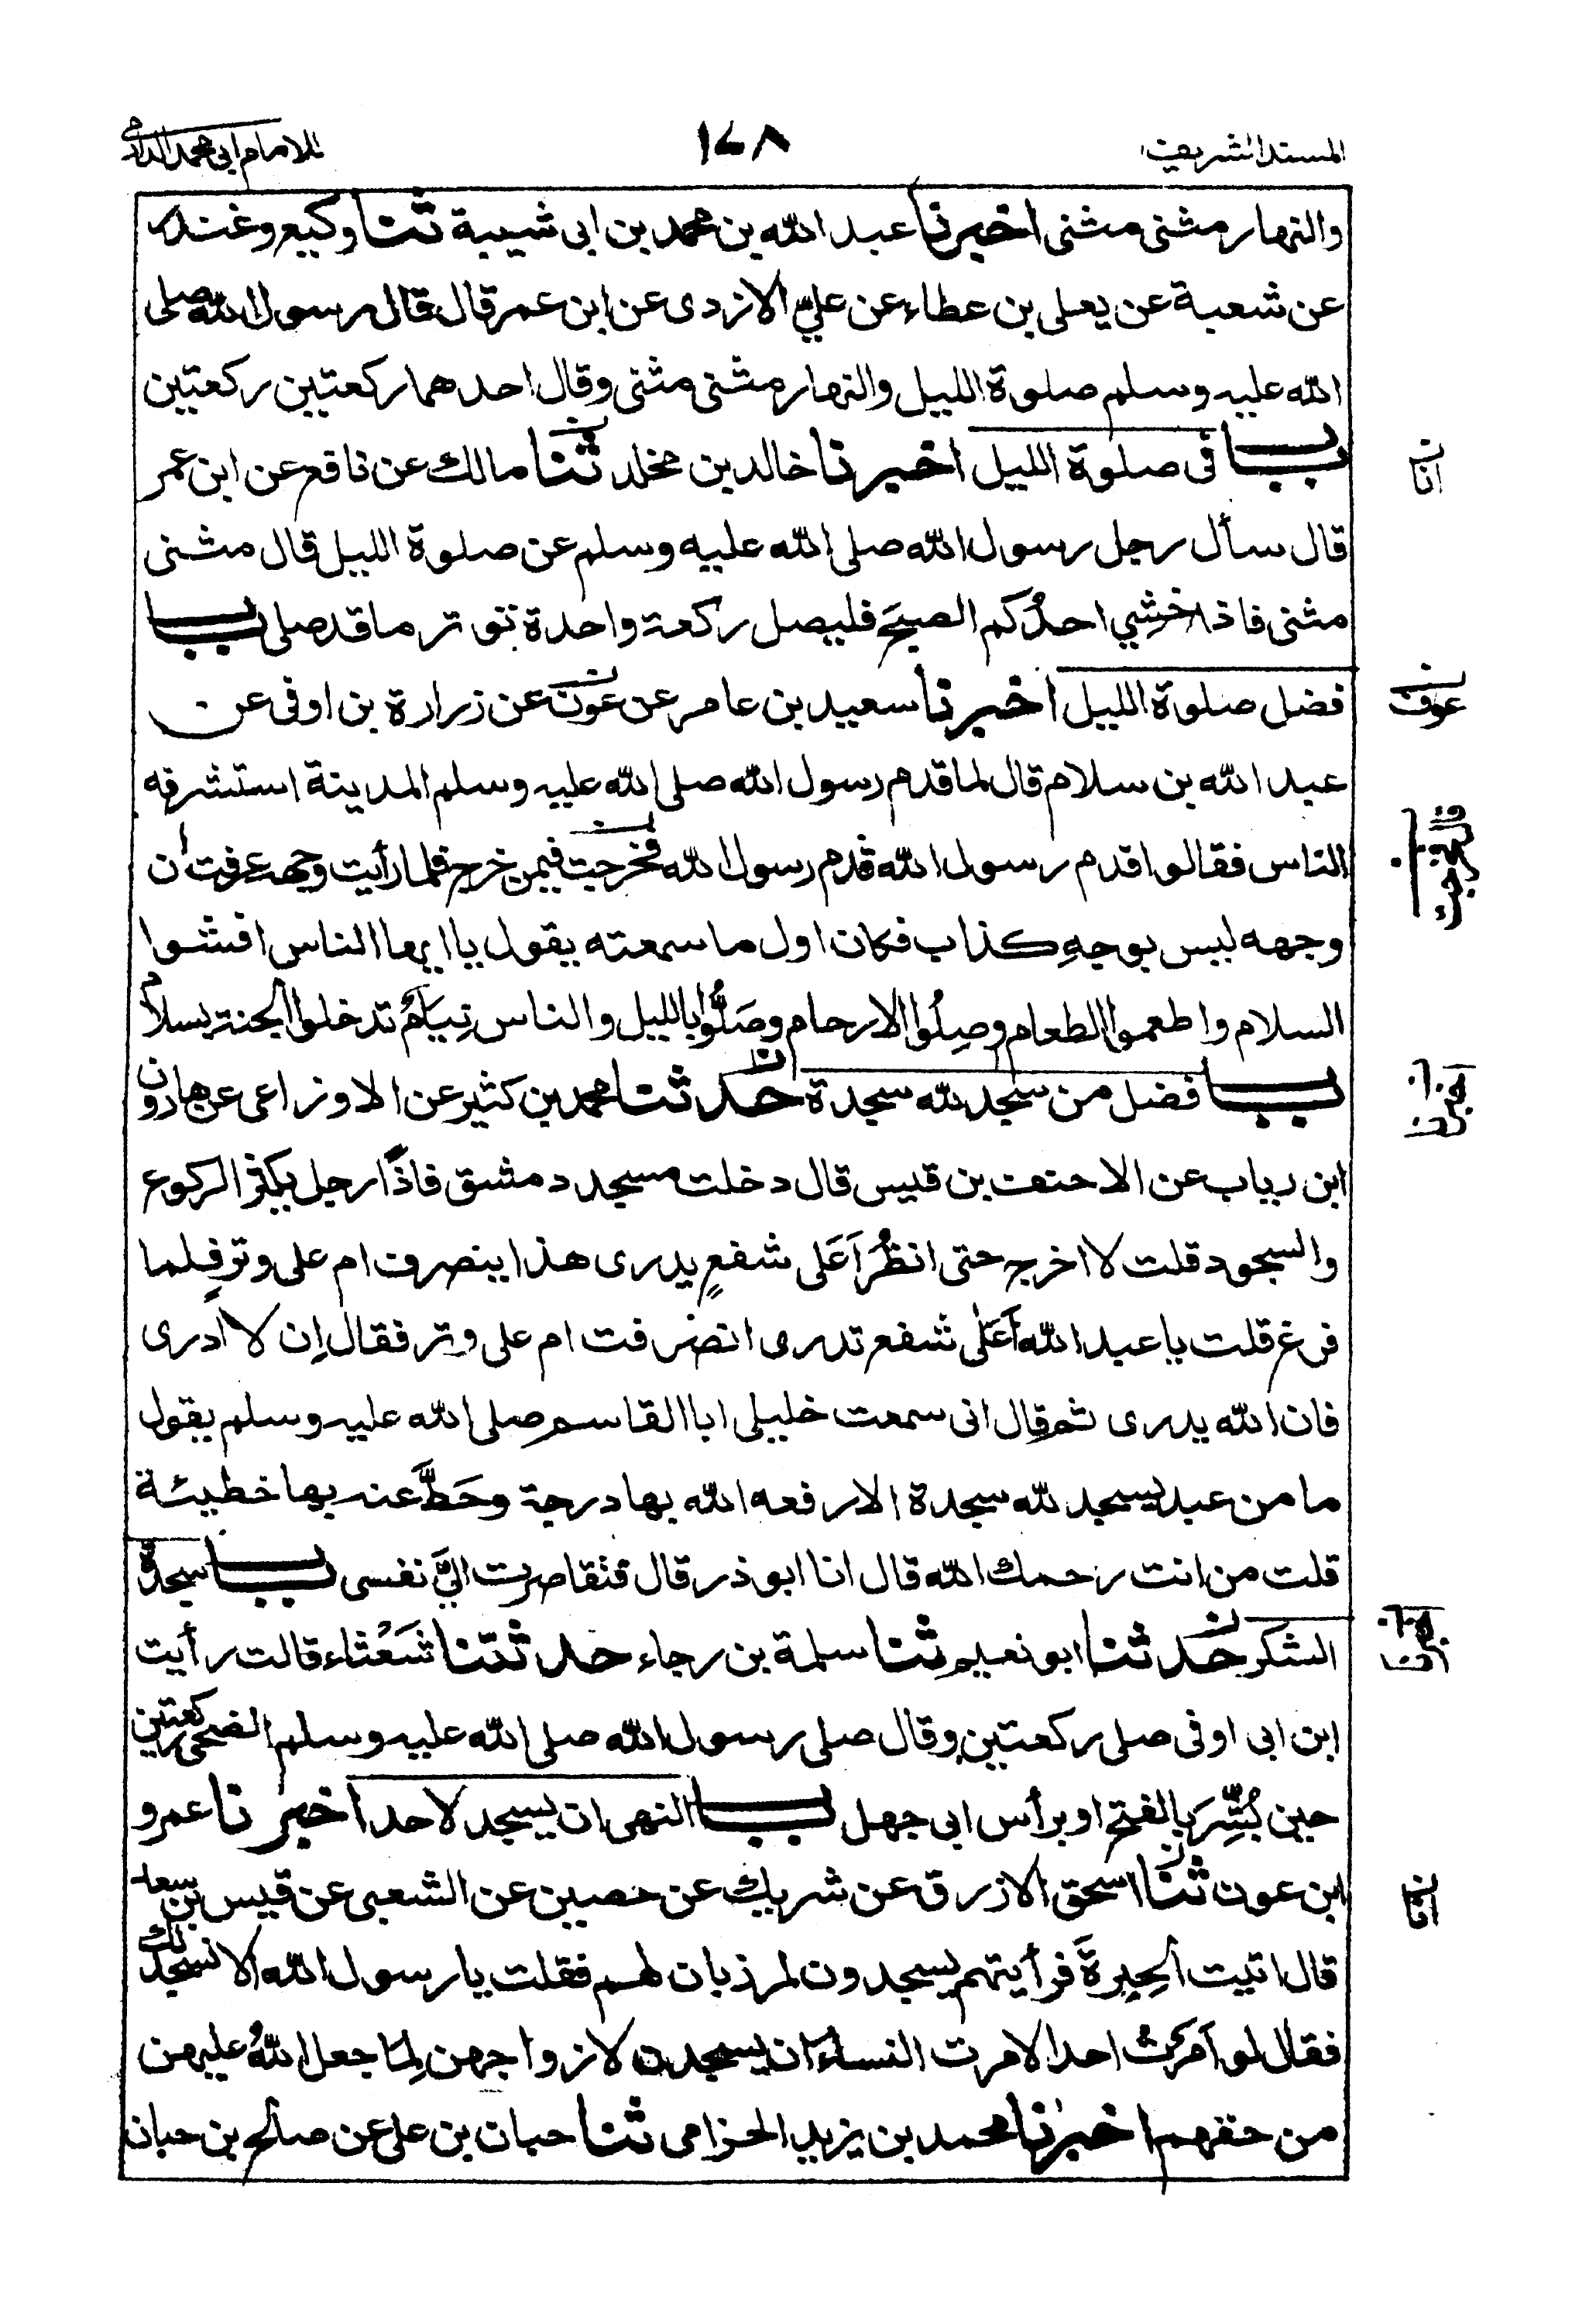 المسند الشريف
١٤٨
للامام ابى محمد الدارمى
والنهار مثنى مثنى اخبرنا عبد الله بن محمد بن ابى شيبة ثنا وكيع وغندر
عن شعبة عن يعلى بن عطاء عن علىّ الازدى عن ابن عمر قال قال رسول الله صلى
الله عليه وسلم صلوة الليل والنهار مثنى مثنى وقال احدهما ركعتين ركعتين
باب فى صلوة الليل اخبرنا خالد بن مخلد ثنا مالك عن نافع عن ابن عمر
قال سأل رجل رسول الله صلى الله عليه وسلم عن صلوة الليل قال مثنى
مثنى فاذا خشِي احدُكم الصبحَ فليصل ركعة واحدة توتر ما قد صلى باب
فضل صلوة الليل اخبرنا سعيد بن عامر عن عون عن زرارة بن اوفى عن
عبد الله بن سلام قال لما قدم رسول الله صلى الله عليه وسلم المدينة استشرفه
الناس فقالوا قدم رسول الله قدم رسول الله فخرجت فيمن خرج فلما رأيت وجهه عرفت أن
وجهه ليس بوجهِ كذاب فكان اول ما سمعته يقول يا ايها الناس افشوا
السلام واطعموا الطعام وصِلُوا الارحام وصَلُّوا بالليل والناس نِيَامٌ تدخلوا الجنة بسلام
باب فضل من سجد لله سجدة حدثنا محمد بن كثير عن الاوزاعى عن هارون
ابن رياب عن الاحنف بن قيس قال دخلت مسجد دمشق فاذًا رجل يكثر الركوع
والسجود قلت لا اخرج حتى انظُرَ أَعَلى شفعٍ يدرى هذا ينصرف ام على وترٍ فلما
فرغ قلت يا عبد الله أعَلٰى شفع تدرى انصرفت ام على وتر فقال إن لا ادرى
فان الله يدرى ثم قال انى سمعت خليلى ابا القاسم صلى الله عليه وسلم يقول
ما من عبد يسجد لله سجدة الا رفعه الله بها درجة وحَطَّ عنه بها خطيئة
قلت من انت رحمك الله قال انا ابو ذر قال فتقاصرت الىَّ نفسى باب سجدة
الشكر حدثنا ابو نعيم ثنا سلمة بن رجاء حدثتنا شَعْثاء قالت رأيت
ابن ابى اوفى صلى ركعتين وقال صلى رسول الله صلى الله عليه وسلم الضحى ركعتين
حين بُشِّرَ بالفتح او برأس ابى جهل باب النهى ان يسجد لاحد اخبرنا عمرو
ابن عون ثنا اسحق الازرق عن شريك عن حصين عن الشعبى عن قيس بن سعد
قال اتيت الحِيرةَ فرأيتهم يسجدون لمرزبان لهم فقلت يا رسول الله الا نسجد لك
فقال لو أمرتُ احدا لامرت النساء ان يسجدن لازواجهن لِمَا جعل اللهُ عليهن
من حقهم اخبرنا محمد بن يزيد الحزامى ثنا حبان بن على عن صالح بن حبان
انا
عوف
انا